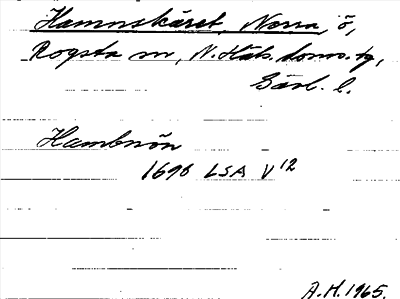 Hamnskäret, Norra, ö,
Rogsta sn, N. Häls. doms. tg,
Gävl. l.
Hambnön
1696 LSA V 12
A.H. 1965.